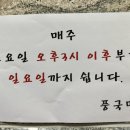 매주
요일 오후3시 이후부
일요일까지 쉽니다.
풍국